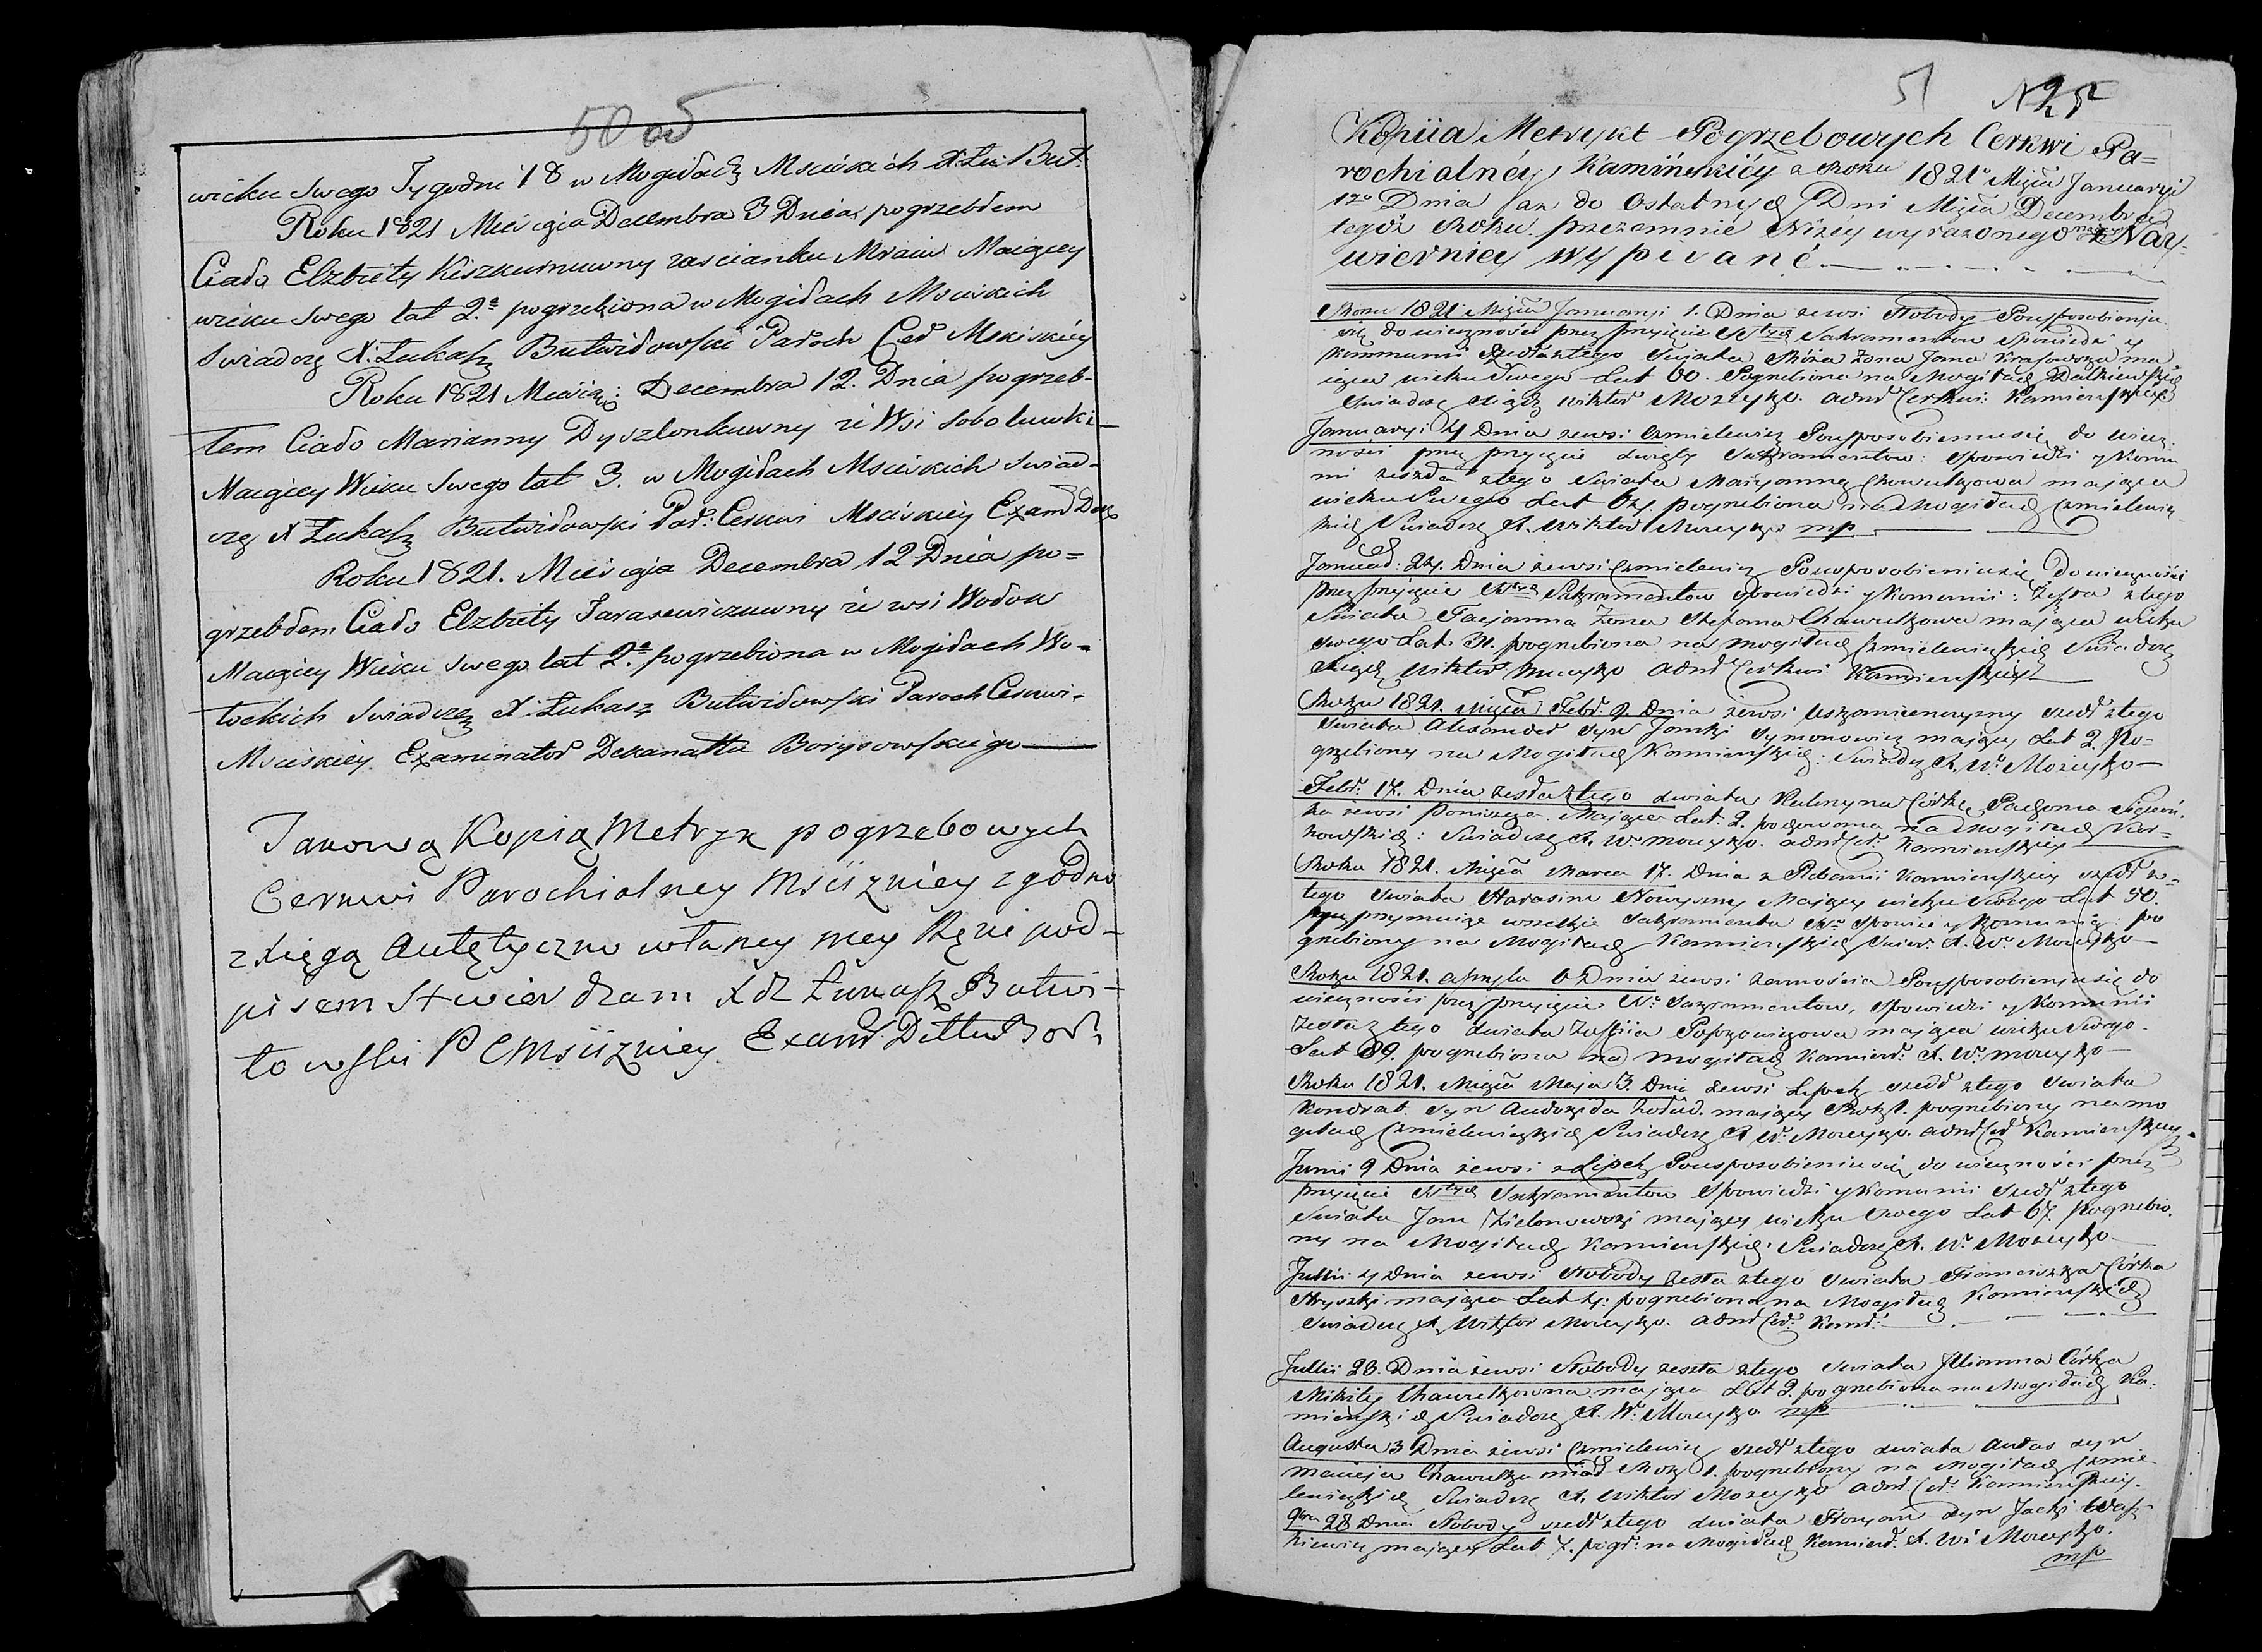 50 об
wieku swego Tygodni 18 w Mogiłach Mściskich X Łu: But:
Roku 1821 Miesięcia Decembra 3 Dnia pogrzebłem
Ciało Elzbiety Kiszkurnuwny zascianku Mraiu Maiącey
wieku swego lat 2.a pogrzebiona w Mogiłach Msciskich
Swiadczę X: Łukasz Butwiłowski Paroch Cer Msciskiey
Roku 1821 Miesięc: Decembra 12. Dnia pogrzeb-
łem Ciało Marianny Dyszlonkuwny ze Wsi Soboluwki
Maiącey Wieku Swego lat 3. w Mogiłach Msciskich swiad-
czę X Łukasz Butwiłowski Par: Cerkwi Msciskiey Exam Dek
Roku 1821. Miesięcia Decembra 12 Dnia po=
grzebłem Ciało Elzbiety Tarasewiczuwny ze wsi Wołok
Maiącey Wieku Swego lat 2.a pogrzebiona w Mogiłach Wo=
łockich Swiadczę X. Łukasz Butwiłowski Paroch Cerkwi
Msciskiey Examinator Dekanattu Borysowskiego
Takową Kopią Metryk pogrzebowych
Cerkwi Parochialney Mściżkiey zgodno
z xięgą Autętyczno własney mey Ręki pod-
pisem Stwierdzam Xdz Łukasz Butwi-
łowski P C Mściżkiey Exam Dttu Bor:
51 N 25
Kopiia Metrykt Pogrzebowych Cerkwi Pa=
rochialnéy Kamińskiéy a Roku 1821o Mięca Januaryi
1go Dnia az do Ostatnych Dni Mięca Decembra
tegóż Roku przezemnie Niżey wyrazonego Nay-
wierniey wypisané.
Roku 1821 Mięca Januaryi 1. Dnia zewsi Słobody Pousposobieniu
się do wieczności przez przyięcie Sakramentow Spowiedzi y
Kommunii zeszła ztego Swiata żona Jana ma
iąca wieku Swego Lat 60. Pogrzebiona na Mogiłach
Swiadczę Xiądz Wiktor Morzycko. adm Cerkwi: Kamieńskiey
Januaryi 4 Dnia zewsi Czmielewicz Pousposobieniusię do wiecz:
ności przez przyięcie Sakramentow: Spowiedzi y Komu
nii zeszła ztego Swiata Maryanna maiąca
wieku Swego Lat pogrzebiona na Mogiłach Czmielewic
kich Swiadczę X. Wiktor Morzycko mp
Januar: 24. Dnia zewsi Czmielewicz Pousposobieniusię do wieczności
przez przyięcie Sakramentow Spowiedzi y Komunii: zeszła ztego
Swiata Tacjanna żona Stefana Chawrutkowa maiąca wieku
swego Lat 31. pogrzebiona na Mogiłach Czmielewickich Swiadczę
Xiądz Wiktor Morzycko adm Cerkwi Kamieńskiey
Roku 1821. Mięca Febr. 9. Dnia zewsi szedł ztego
Swiata Alexander Syn Symonowicz maiący Lat 2. Po=
grzebiony na Mogiłach Kamieńskich: Swiadczę X. W. Morzycko
Febr. 17. Dnia zeszła ztego Swiata Katerzyna Córka
zewsi Maiąca Lat. 2. pochowana na Mogiłach
Swiadczę X. W. Morzycko. adm Cer: Kamieńskiey
Roku 1821. Mięca Marca 17. Dnia z Plebanii Kamieńskiey szedł z=
tego Swiata Harasim Nowyszny Maiący wieku Swego Lat 50.
przyymuiąc wszelkie Sakramenta Spowie y Komunię: po
grzebiony na Mogiłach Kamieńskich Swiad: X. W. Morzycko
Roku 1821. Apryla 6 Dnia zewsi Zamościa Pousposobieniusię do
wieczności przez przyięcie Sakramentow, Spowiedzi y Komunii
zeszła ztego Swiata Zofiia maiąca wieku Swego.
Lat 89. pogrzebiona na Mogiłach Kamień: X. W. Morzycko
Roku 1821. Mięca Maja 3. Dnia zewsi szedł ztego Swiata
Kondrat. Syn maiący Rok 1. pogrzebiony na mo
giłach Czmielewickich Swiadczę X W. Morzycko. adm Cer Kamieńskiey
Junii 9 Dnia zewsi Pousposobieniusię do wieczności przez
przyięcie Sakramentow Spowiedzi y Komunii szedł ztego
Swiata Jan Zielonowski maiący wieku Swego Lat 67. pogrzebio.
ny na Mogiłach Kamieńskich Swiadczę X. W. Morzycko
Julii 4 Dnia zewsi Słobody zeszła ztego Swiata Franciszka Córka
maiąca Lat 4: pogrzebiona na Mogiłach Kamieńskich
Swiadczę X. Wiktor Morzycko. adm Cer: Kam:
Julii 23. Dnia zewsi Słobody zeszła ztego Swiata Jllianna Córka
Mikity maiąca Lat 2. pogrzebiona na Mogiłach Ka:
mieńskich Swiadczę X. W: Morzycko mp
Augusta 3 Dnia zewsi Czmielewicz szedł ztego Swiata Audas syn
Macieja miał Rok 1. pogrzebiony na Mogiłach Czmie
lewickich Swiadczę X. Wiktor Morzycko adm Cer: Kamieńskiey.
28 Dnia Słobody szedł ztego Swiata syn Jacki
maiący Lat 7. pogr: na Mogiłach Kamień: X. Wi Morzycko.
mp